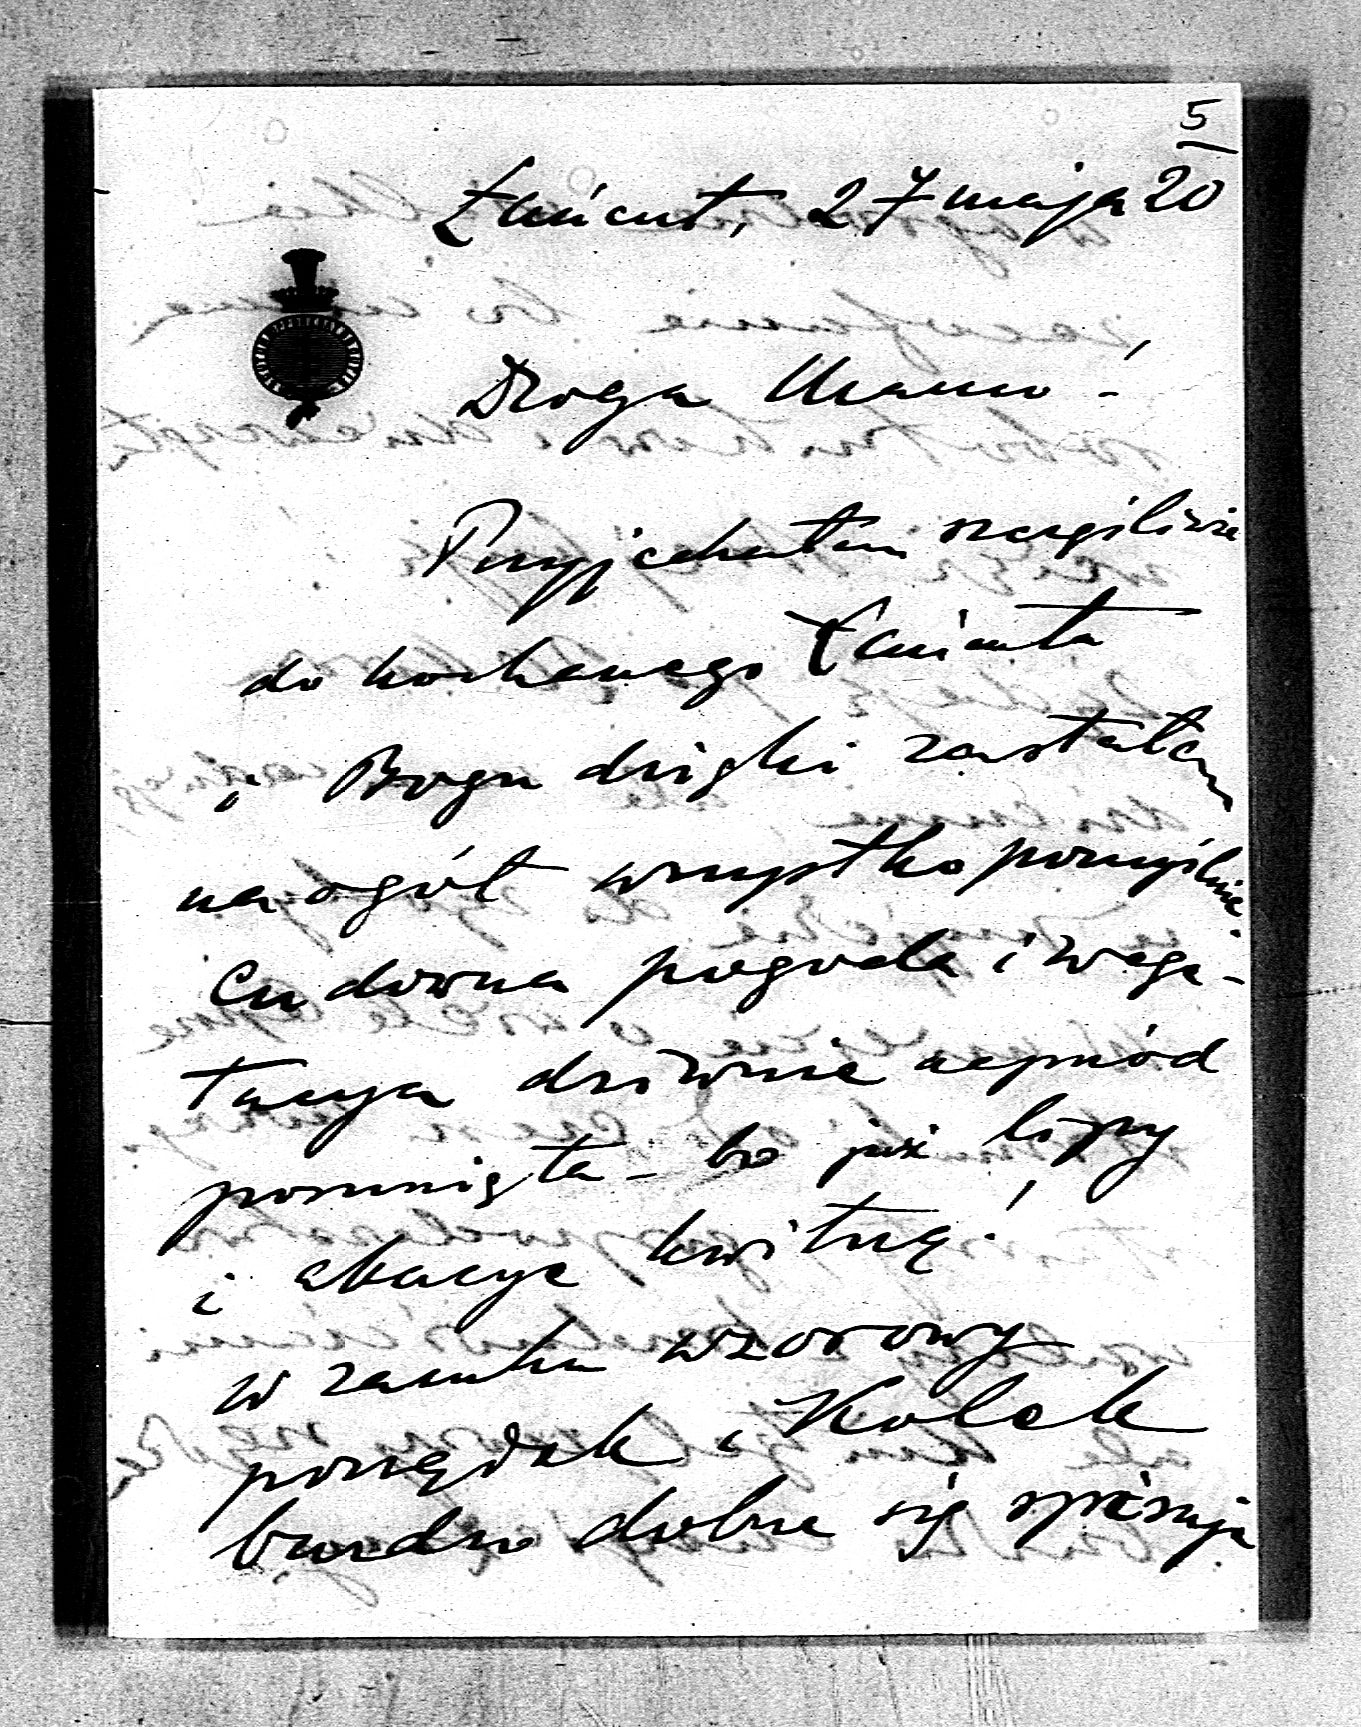 5
Łańcut, 27 maja 20
Droga Mamo!
Przyjechałem szczęśliwie
do kochanego Łańcuta
i Bogu dzięki zastałem
na ogół wszystko pomyślnie.
Cudowna pogoda i wege-
tacya dziwnie naprzód
posunięta - bo już lipy
i akacye kwitną!
W zamku wzorowy
porządek i Kolek
bardzo dobrze się spisuje